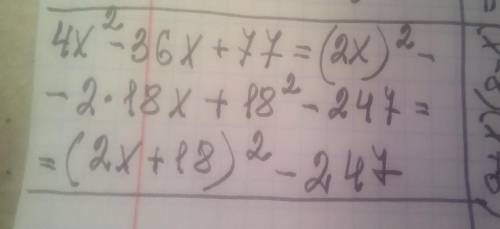 4x² - 36x + 77 = (2x)² -
- 2 · 18x + 18² - 247 =
= (2x + 18)² - 247